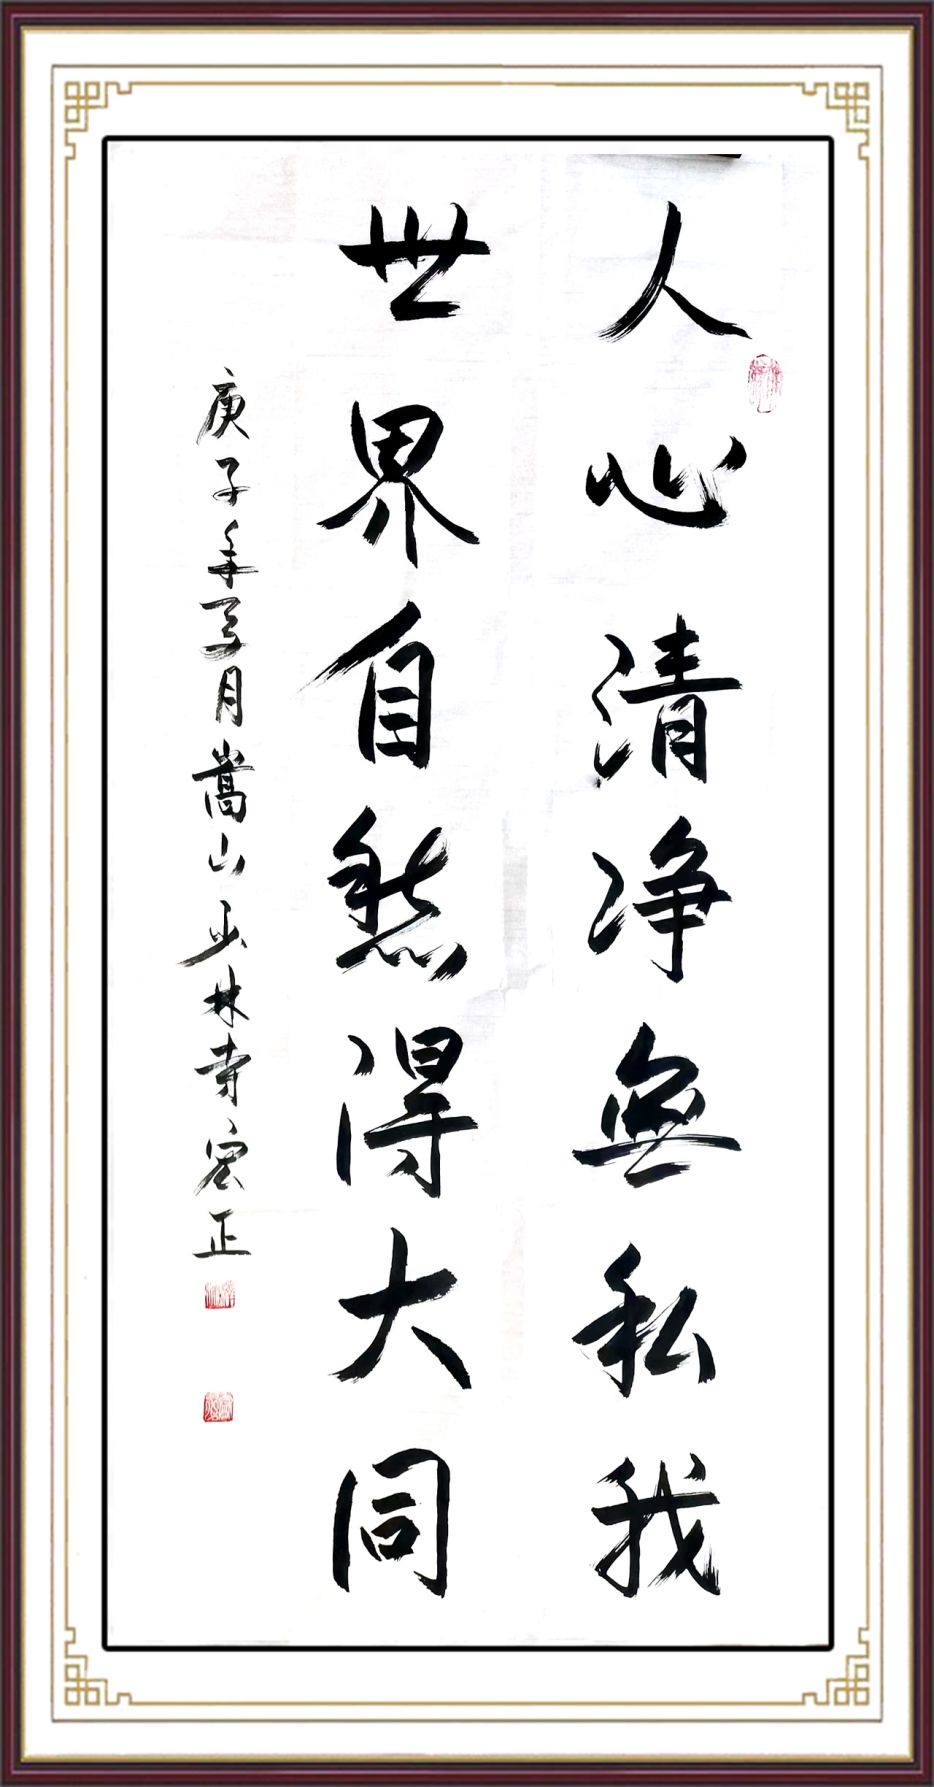 人心清净無私我
世界自然得大同
庚子年写月嵩山少林寺宏正